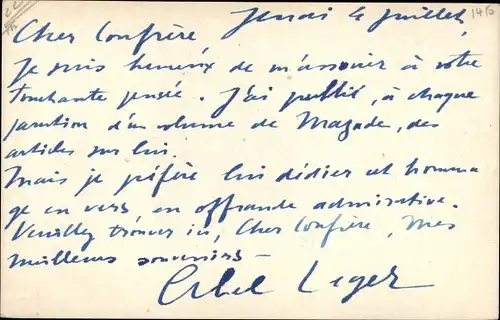 Jeudi 4 juillet,
Cher Confrère
Je suis heureux de m'associer à votre
touchante pensée. J'ai publié, à chaque
parution d'un volume de Magade, des
articles sur lui.
Mais je préfère lui dédier cet homma
ge en vers, en offrande admirative.
Veuillez trouver ici, Cher Confrère, mes
meilleurs souvenirs –
Abel Leger